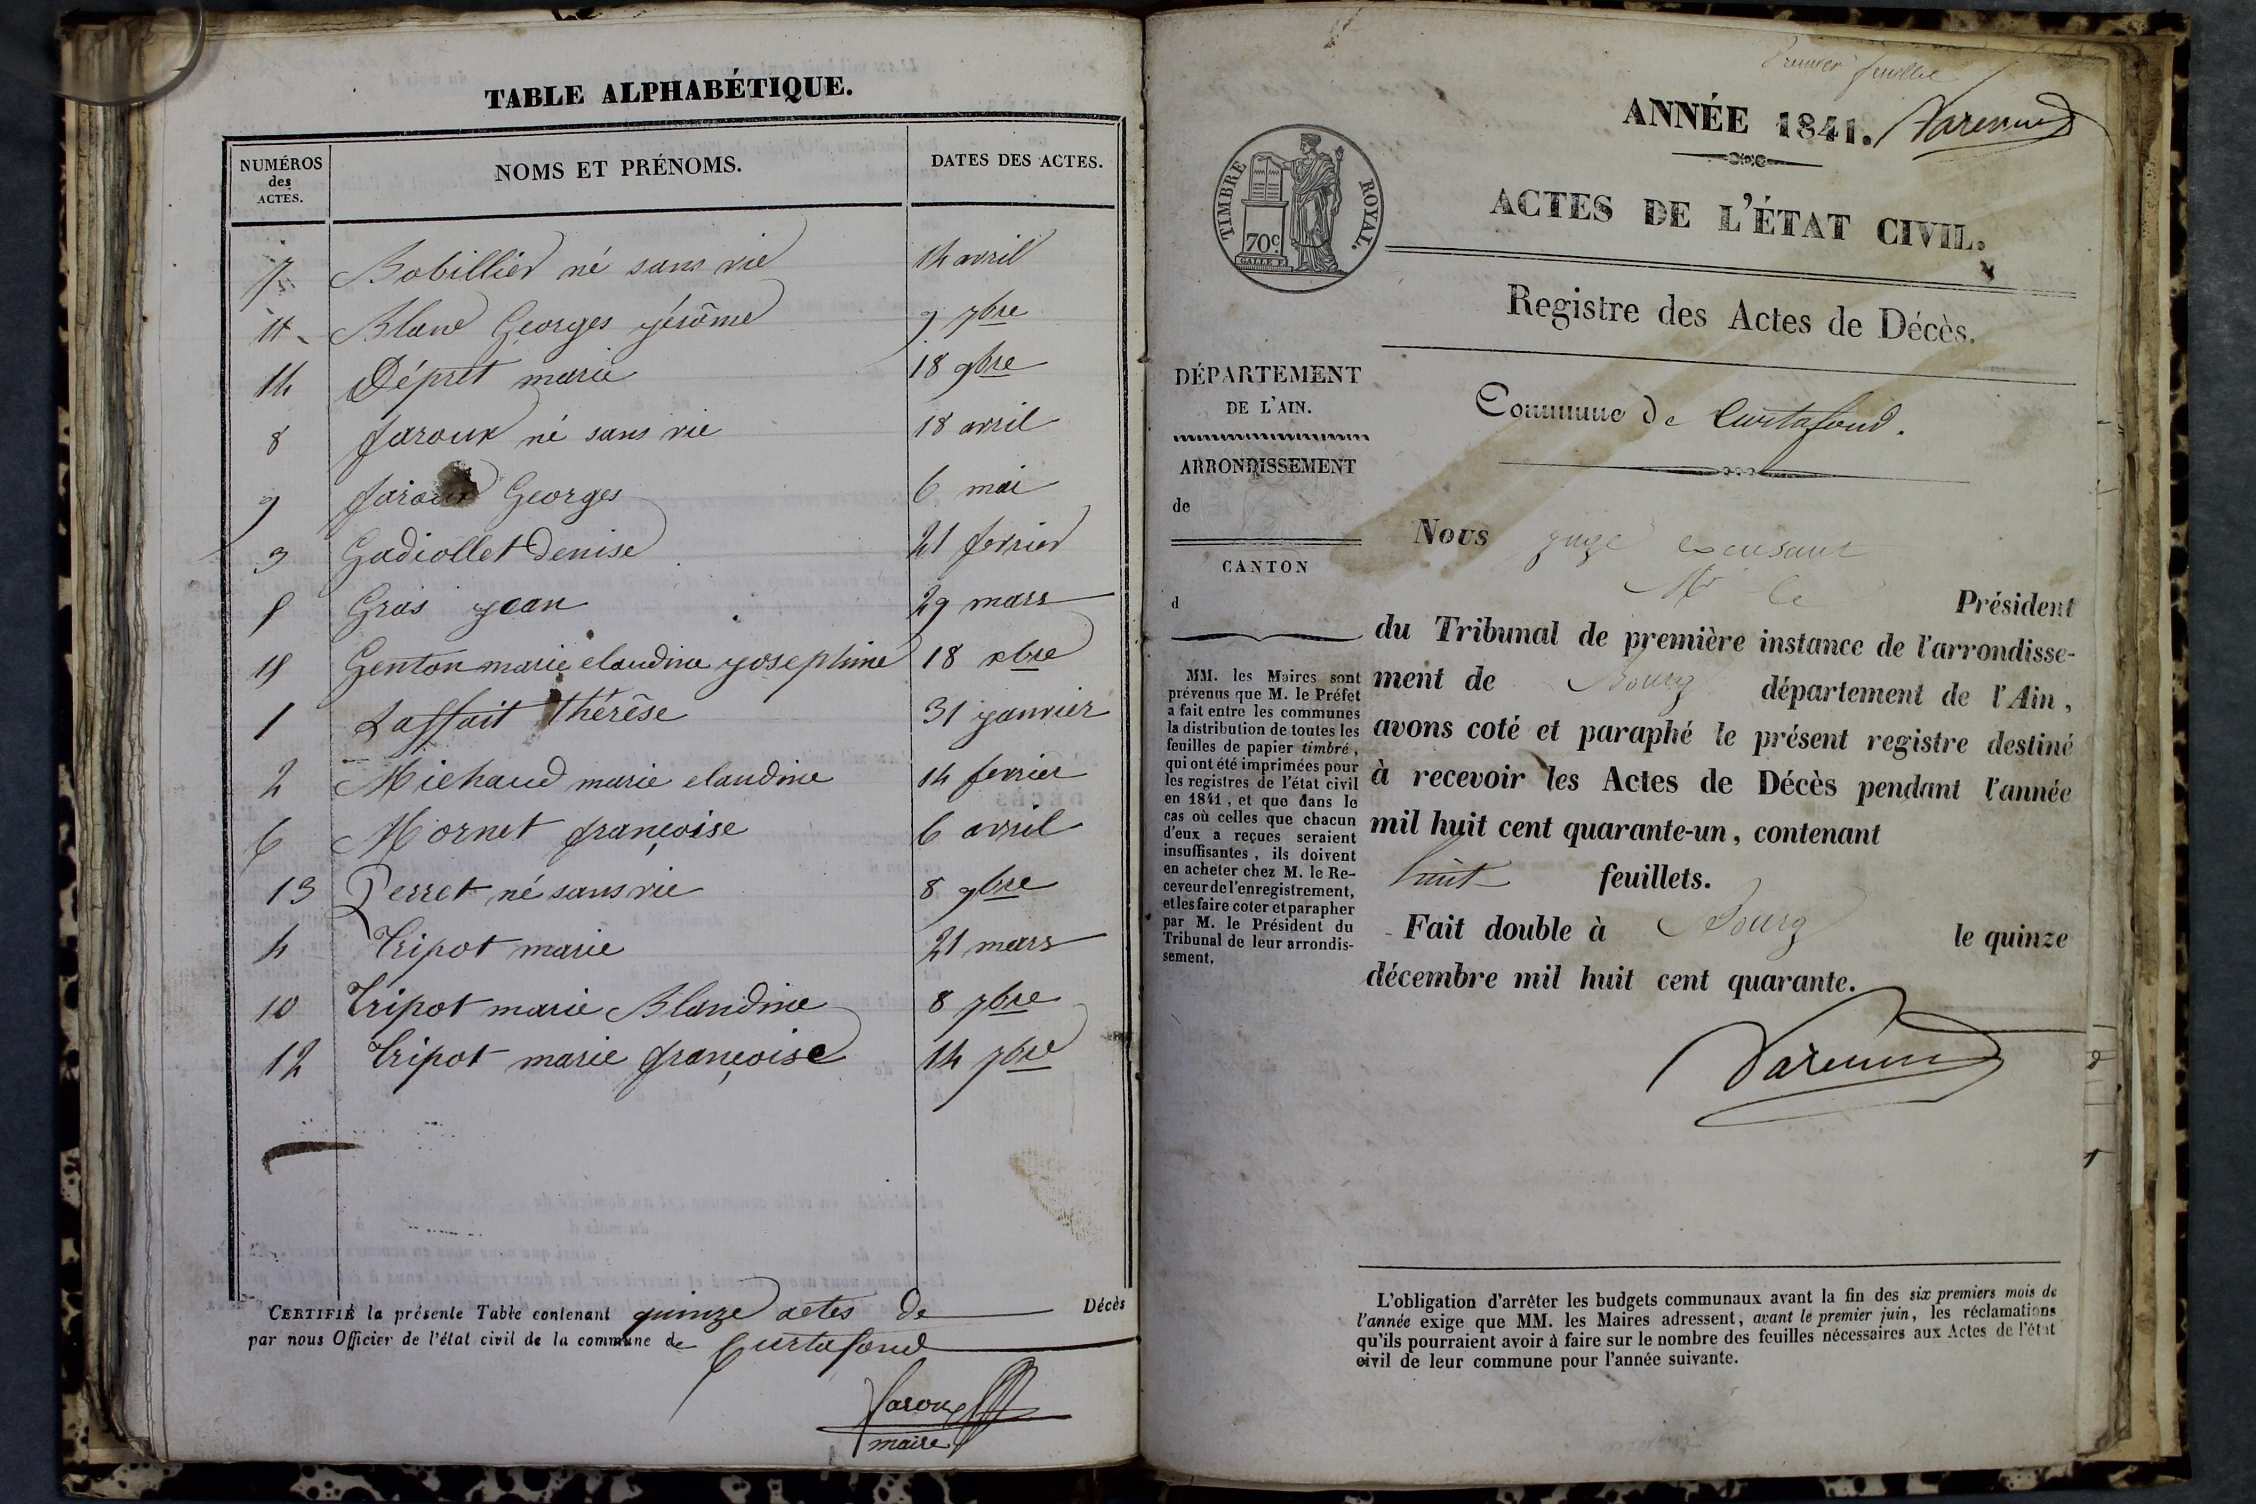 TABLE ALPHABÉTIQUE.
NUMÉROS des ACTES. NOMS ET PRÉNOMS. DATES DES ACTES.
7 Bobillier né sans vie 14 avril
11 Blanc Georges jérôme 9 7bre
14 Déprit marie 18 9bre
8 faroux né sans vie 18 avril
9 faroux Georges 6 mai
3 Gadiollet Denise 21 fevrier
5 Gras jean 29 mars
15 Genton marie claudine josephine 18 xbre
1 Laffait Thérèse 31 janvier
2 Michaud marie claudine 14 fevrier
6 Mornet françoise 6 avril
13 Perret né sans vie 8 9bre
4 Tripot marie 21 mars
10 Tripot marie Blandine 8 7bre
12 Tripot marie françoise 14 7bre
CERTIFIÉ la présente Table contenant quinze actes de Décès
par nous Officier de l'état civil de la commune de Curtafond
faroux
maire
Premier feuillet
ANNÉE 1841.
TIMBRE ROYAL.
70c.
GALLE F.
ACTES DE L'ÉTAT CIVIL.
Registre des Actes de Décès.
DÉPARTEMENT
DE L'AIN.
ARRONDISSEMENT
de
CANTON
d
MM. les Maires sont
prévenus que M. le Préfet
a fait entre les communes
la distribution de toutes les
feuilles de papier timbré,
qui ont été imprimées pour
les registres de l'état civil
en 1841, et que dans le
cas où celles que chacun
d'eux a reçues seraient
insuffisantes, ils doivent
en acheter chez M. le Re-
ceveur de l'enregistrement,
et les faire coter et parapher
par M. le Président du
Tribunal de leur arrondis-
sement.
Commune de Curtafond.
Nous juge excusant
Mr le Président
du Tribunal de première instance de l'arrondisse-
ment de Bourg département de l'Ain,
avons coté et paraphé le présent registre destiné
à recevoir les Actes de Décès pendant l'année
mil huit cent quarante-un, contenant
huit feuillets.
Fait double à Bourg le quinze
décembre mil huit cent quarante.
L'obligation d'arrêter les budgets communaux avant la fin des six premiers mois de
l'année exige que MM. les Maires adressent, avant le premier juin, les réclamations
qu'ils pourraient avoir à faire sur le nombre des feuilles nécessaires aux Actes de l'état
civil de leur commune pour l'année suivante.